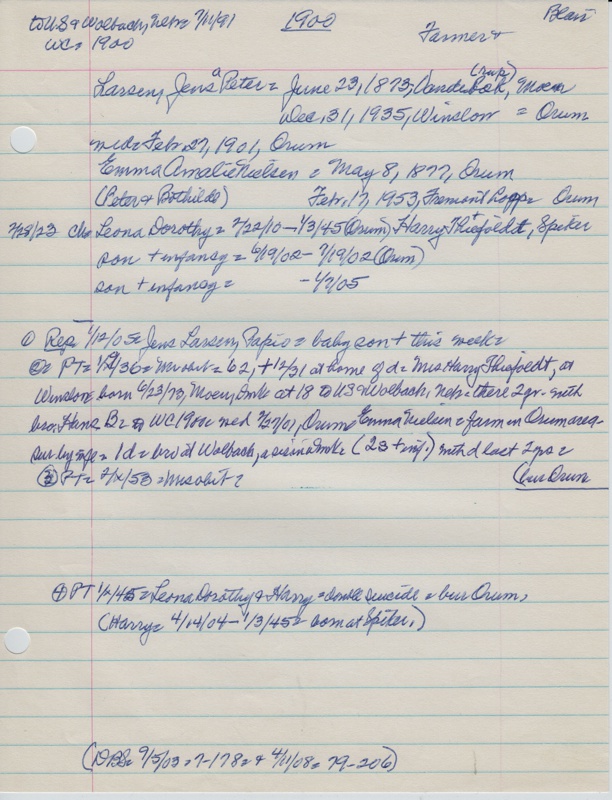 to U.S & Wolbach, Nebr= 7/11/91
1900
Farmer +
Blair
WC= 1900
Larsen, Jens Peter = June 23, 1873, Moen
Dec, 31, 1935, Winslow = Orum
md= Febr. 27, 1901, Orum
Emma Amalie Nielsen = May 8, 1877, Orum
(Peter & Bothilde) Febr. 17, 1953, Fremont Hosp= Orum
7/28/23 ch= Leona Dorothy = 7/22/10 – 1/3/45 (Orum), Harry Thiefoldt, Spiker
son + infancy = 6/19/02 – 7/19/02 (Orum)
son + infancy = – 1/7/05
① Rep= 1/12/05= Jens Larsen, Papio = baby son + this week=
② PT= = 62, + 12/31 at home of d = Mrs Harry Thiefoldt, at
Winslow= born 6/23/73, Moen, Dmk at 18 to US & Wolbach, Nebr= there 2 yr. with
bro, Hans B= to WC 1900= wed 2/27/01, Orum, Emma Nielsen = farm in Orum area=
sur. by wife = 1 d = bro at Wolbach, a sis in Dmk= (2s + inf.) with d last 2 yrs =
(bur Orum
③ PT=
④ PT 1/4/45= Leona Dorothy & Harry = double suicide = bur Orum,
(Harry= 4/14/04 – 1/3/45= born at Spiker.)
(DBS= 9/5/03 = 7-178= + 4/11/08= 79-206)